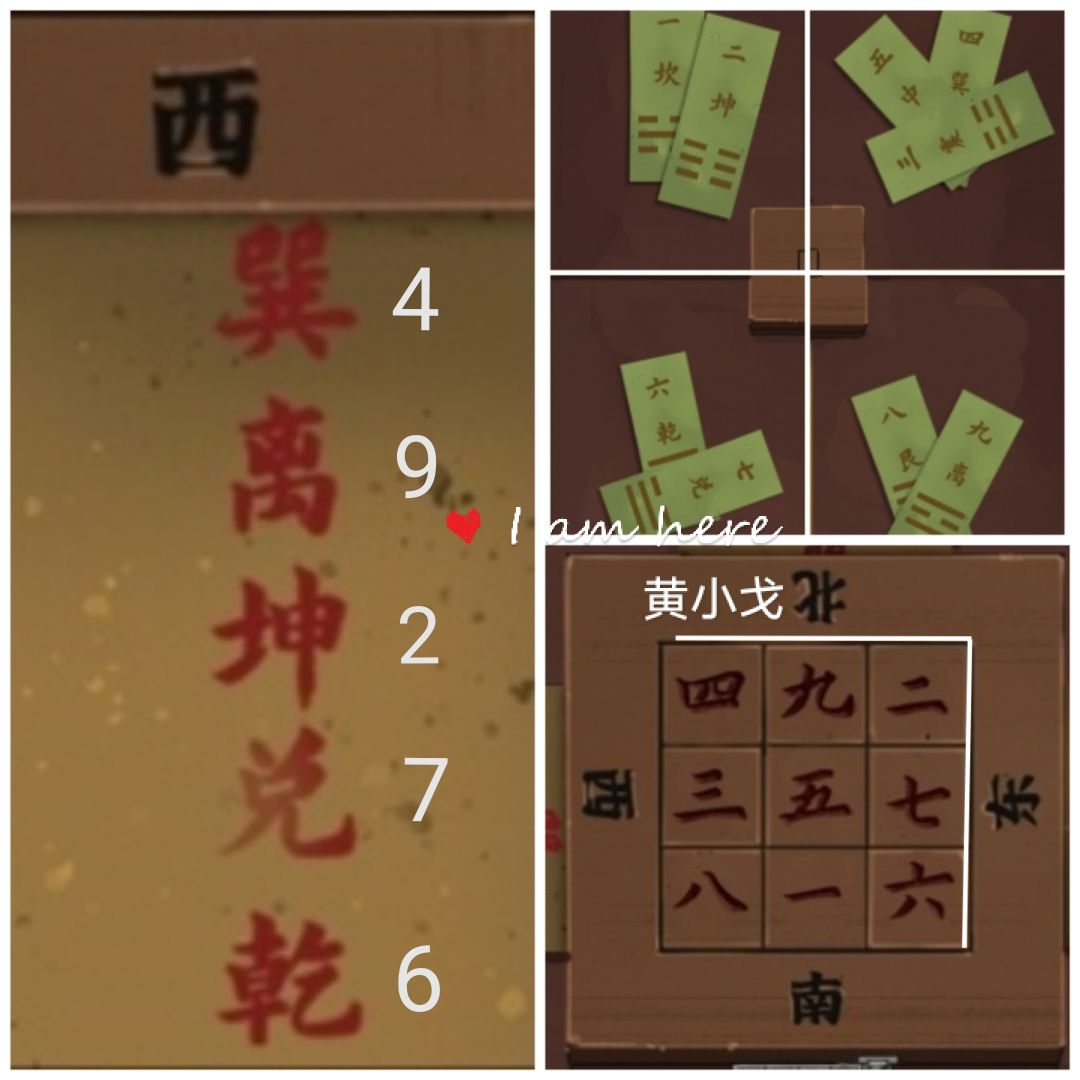 西
巽 4
离 9
坤 2
兑 7
乾 6
一 坎
二 坤
五 中
四 巽
三 震
六 乾
七 兑
八 艮
九 离
I am here
黄小戈
北
四 九 二
西 三 五 七 东
八 一 六
南